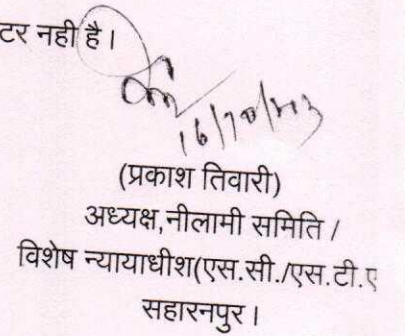 टर नही है।
(प्रकाश तिवारी)
अध्यक्ष,नीलामी समिति /
विशेष न्यायाधीश(एस.सी./एस.टी.ए
सहारनपुर।